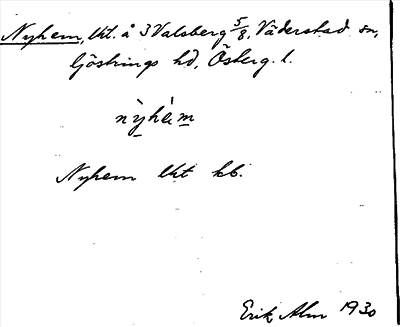 Nyhem, lht. å 3 Valsberg 5/8, Väderstad sn,
Göstrings hd, Österg. l.
nỳhèm
Nyhem lht kb.
Erik Alm 1930